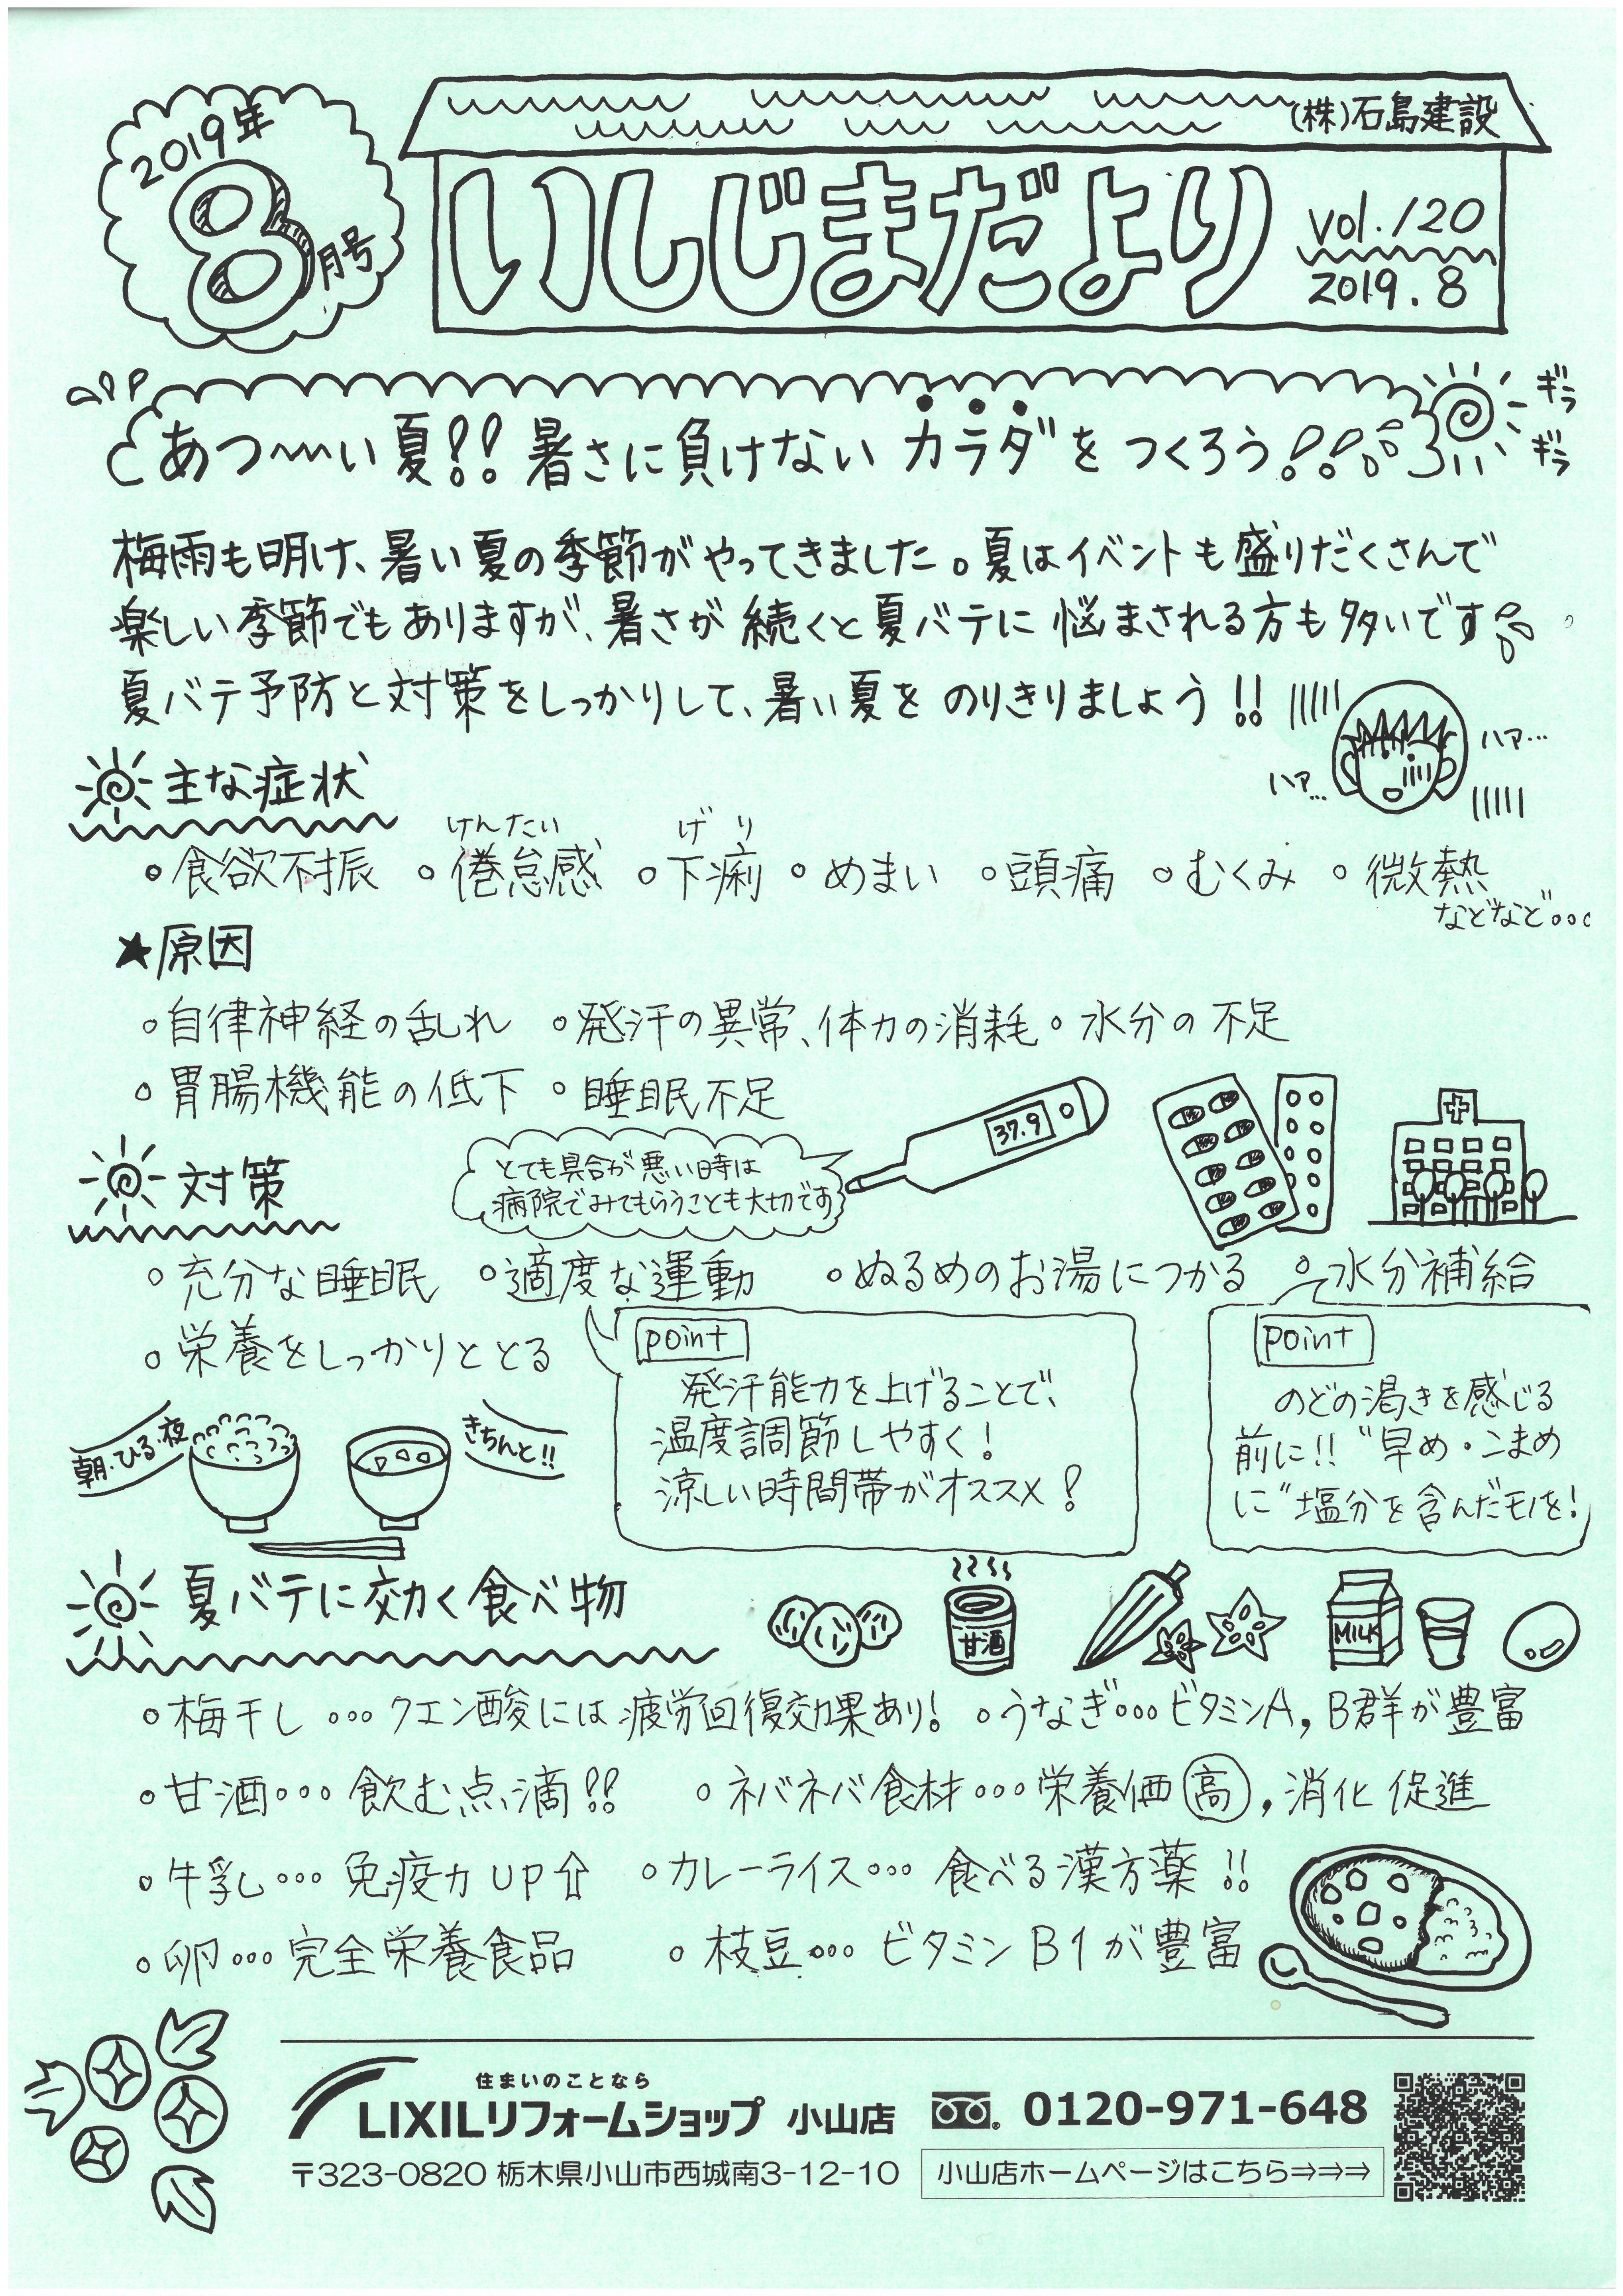 2019年
8月号
(株)石島建設
いしじまだより
vol.120
2019.8
あつ〜い夏!! 暑さに負けないカラダをつくろう!!
ギラ
ギラ
梅雨も明け、暑い夏の季節がやってきました。夏はイベントも盛りだくさんで
楽しい季節でもありますが、暑さが続くと夏バテに悩まされる方も多いです
夏バテ予防と対策をしっかりして、暑い夏をのりきりましょう!!
ハァ…
ハァ…
主な症状
けんたい げり
。食欲不振 。倦怠感 。下痢 。めまい 。頭痛 。むくみ 。微熱
などなど…
★原因
。自律神経の乱れ 。発汗の異常、体力の消耗 。水分の不足
。胃腸機能の低下 。睡眠不足
37.9
対策
とても具合が悪い時は
病院でみてもらうことも大切です
。充分な睡眠 。適度な運動 。ぬるめのお湯につかる 。水分補給
。栄養をしっかりととる
朝・ひる・夜
きちんと!!
point
発汗能力を上げることで、
温度調節しやすく!
涼しい時間帯がオススメ!
point
のどの渇きを感じる
前に!! "早め・こまめ
に"塩分を含んだモノを!
夏バテに効く食べ物
甘酒
MILK
。梅干し…クエン酸には疲労回復効果あり! 。うなぎ…ビタミンA,B群が豊富
。甘酒…飲む点滴!! 。ネバネバ食材…栄養価高,消化促進
。牛乳…免疫力UP⇧ 。カレーライス…食べる漢方薬!!
。卵…完全栄養食品 。枝豆…ビタミンB1が豊富
住まいのことなら
LIXILリフォームショップ 小山店 0120-971-648
〒323-0820 栃木県小山市西城南3-12-10 小山店ホームページはこちら⇒⇒⇒